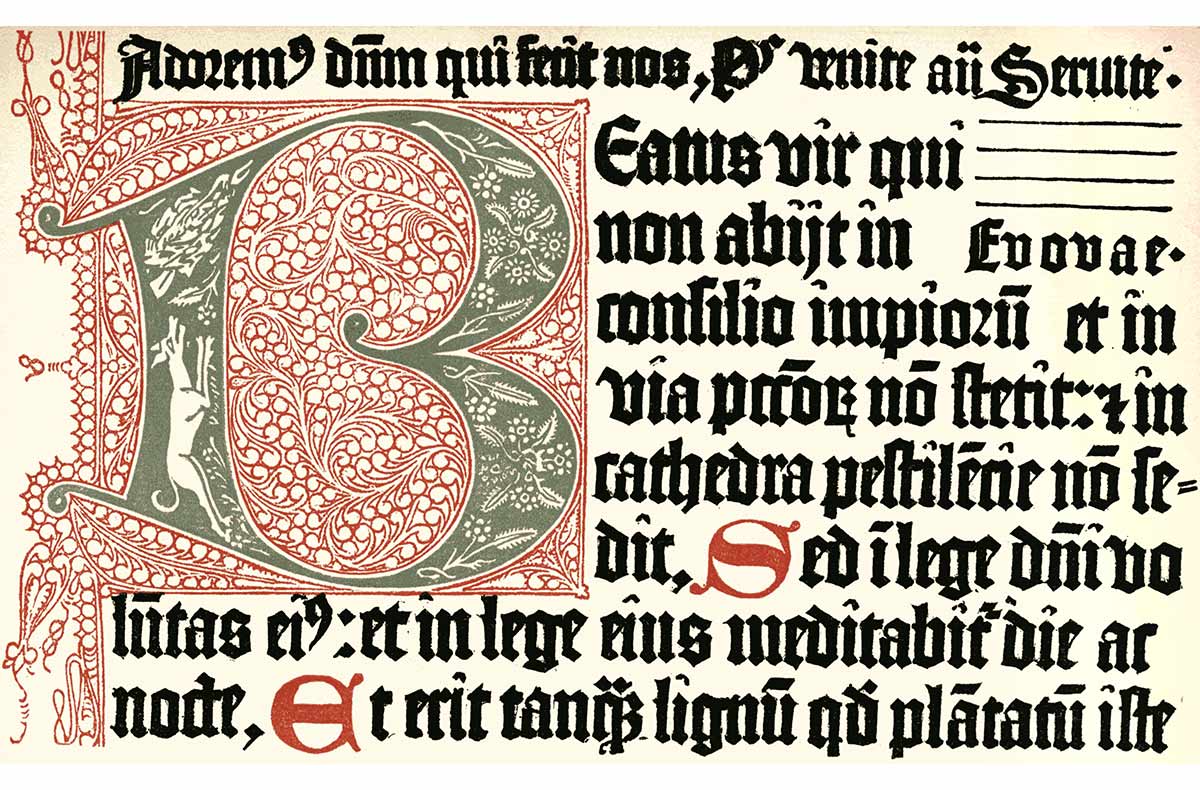 Adorem⁹ dn̄m qui fecit nos, Ps̄ venite añ Seruite.
Beatus vir qui
non abijt in Evovae.
consilio impiorū et in
via pccōꝝ nō stetit: ⁊ in
cathedra pestilēcie nō se=
dit, Sed ī lege dn̄i vo
lūtas ei⁹: et in lege eius meditabit᷑ die ac
nocte, Et erit tanqꝫ lignū qd̄ plātatū iste